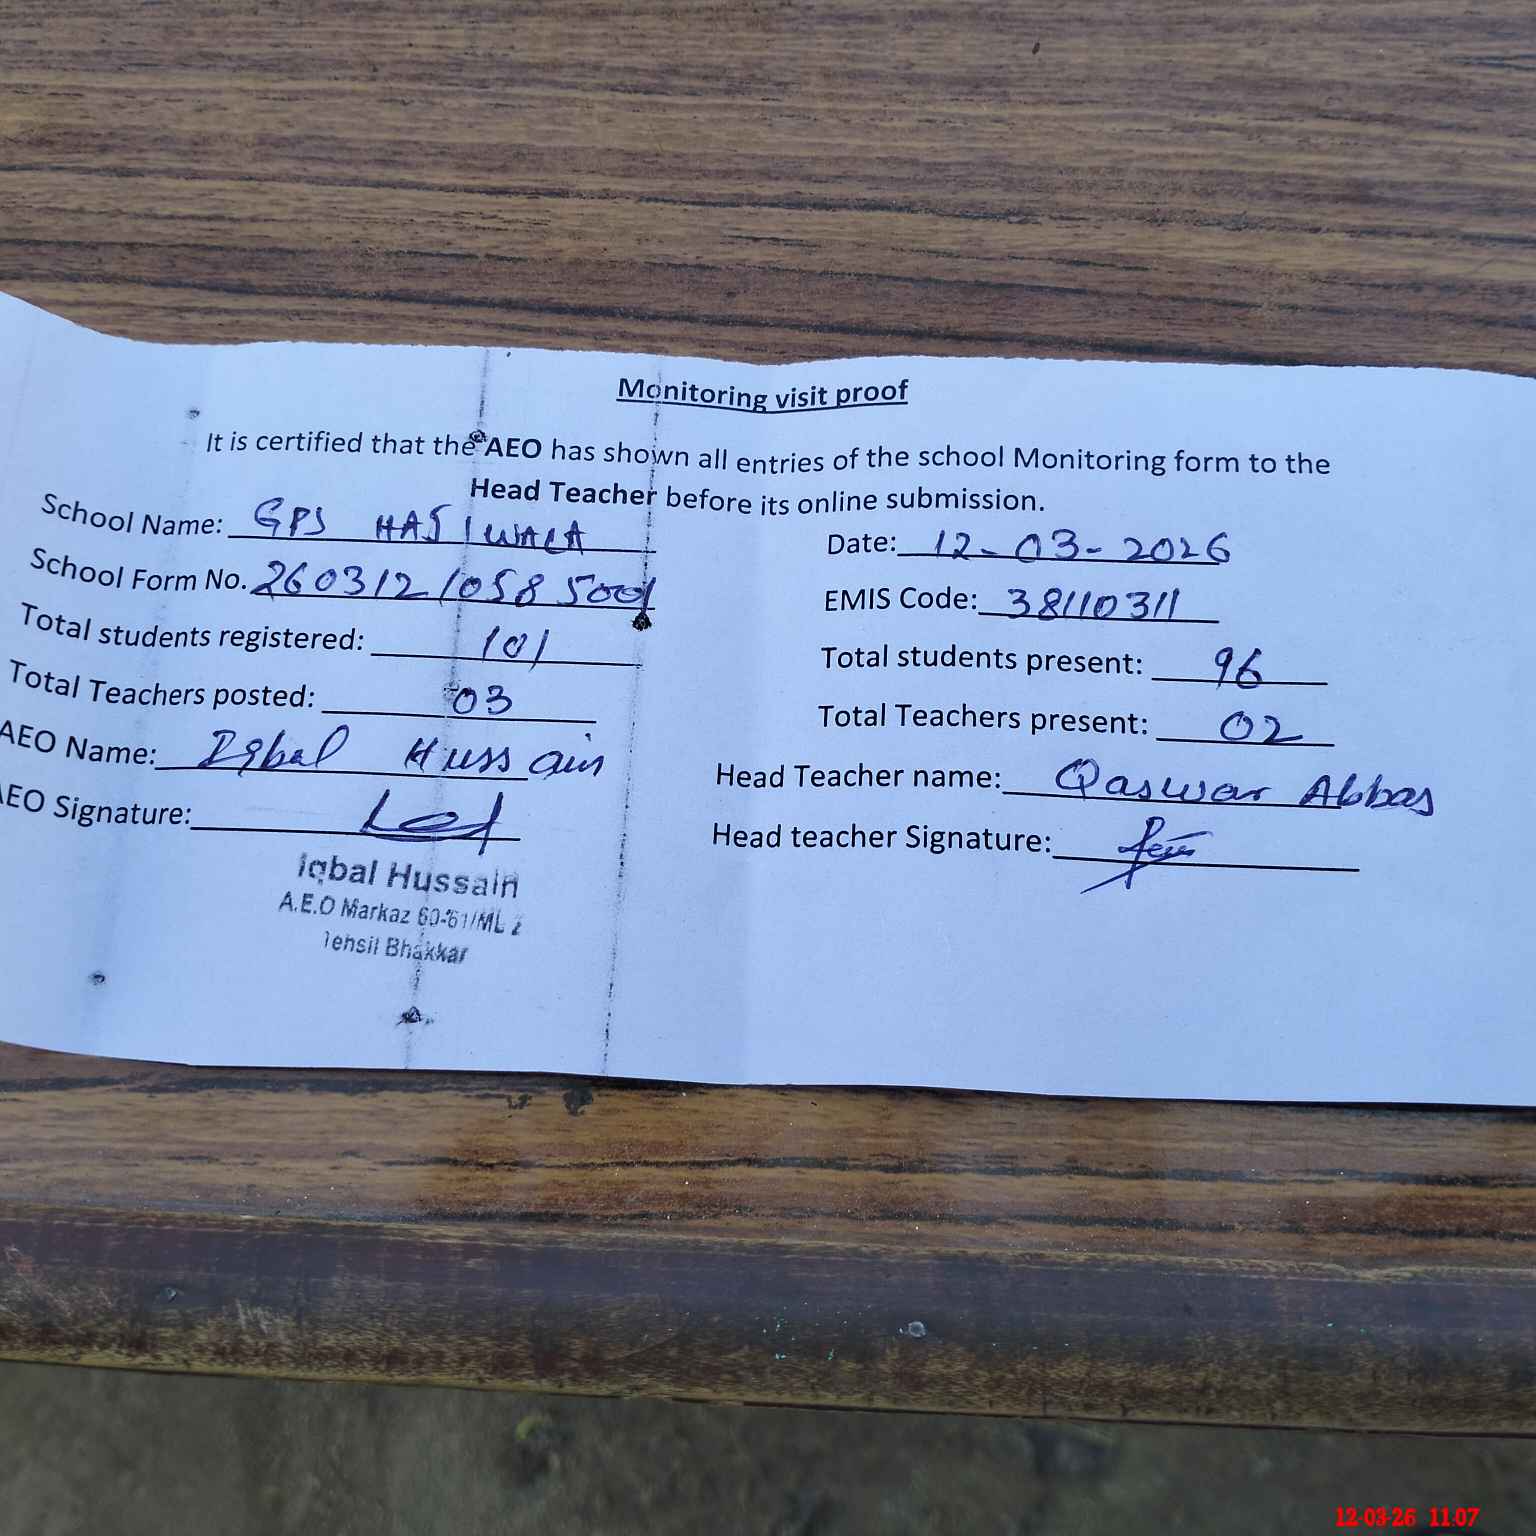 Monitoring visit proof
It is certified that the AEO has shown all entries of the school Monitoring form to the
Head Teacher before its online submission.
School Name: GPS HASIWALA
Date: 12-03-2026
School Form No. 26031210585001
EMIS Code: 38110311
Total students registered: 101
Total students present: 96
Total Teachers posted: 03
Total Teachers present: 02
AEO Name: Iqbal Hussain
Head Teacher name: Qaswar Abbas
AEO Signature:
Head teacher Signature:
Iqbal Hussain
A.E.O Markaz 60-61/ML 2
Tehsil Bhakkar
12-03-26 11:07